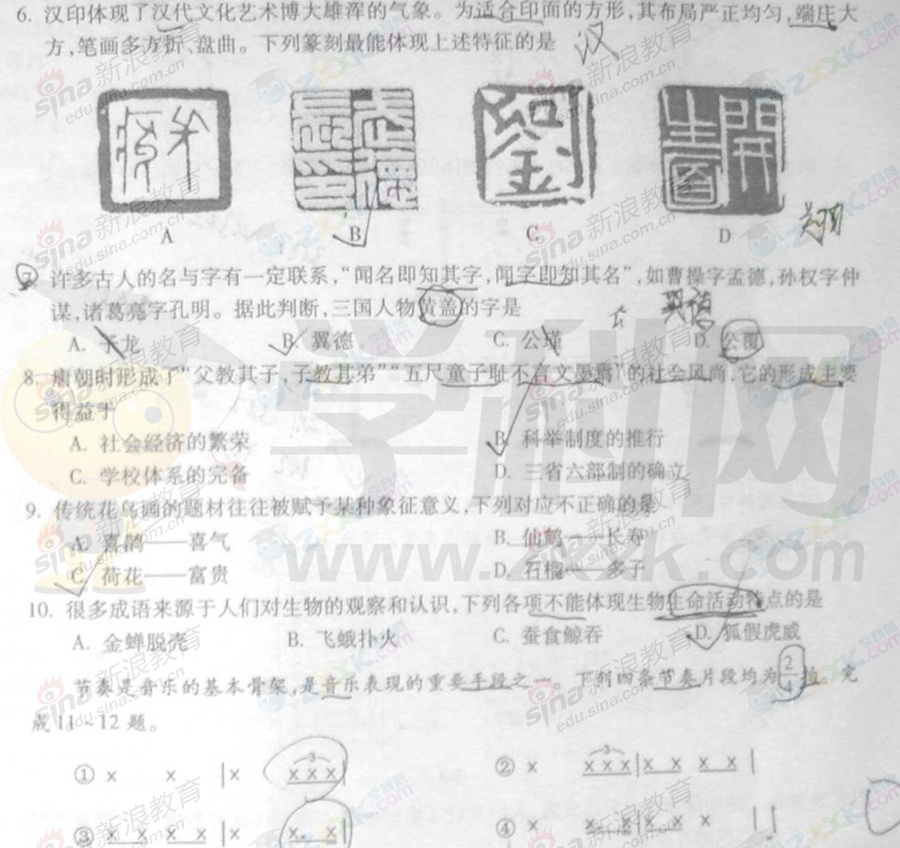 6. 汉印体现了汉代文化艺术博大雄浑的气象。为适合印面的方形,其布局严正均匀,端庄大
方,笔画多方折、盘曲。下列篆刻最能体现上述特征的是
汉
A B C D
7. 许多古人的名与字有一定联系,“闻名即知其字,闻字即知其名”,如曹操字孟德,孙权字仲
谋,诸葛亮字孔明。据此判断,三国人物黄盖的字是
A. 子龙 B. 翼德 C. 公瑾 D. 公覆
8. 唐朝时形成了“父教其子,子教其弟”“五尺童子耻不言文墨焉”的社会风尚,它的形成主要
得益于
A. 社会经济的繁荣 B. 科举制度的推行
C. 学校体系的完备 D. 三省六部制的确立
9. 传统花鸟画的题材往往被赋予某种象征意义,下列对应不正确的是
A. 喜鹊——喜气 B. 仙鹤——长寿
C. 荷花——富贵 D. 石榴——多子
10. 很多成语来源于人们对生物的观察和认识,下列各项不能体现生物生命活动特点的是
A. 金蝉脱壳 B. 飞蛾扑火 C. 蚕食鲸吞 D. 狐假虎威
节奏是音乐的基本骨架,是音乐表现的重要手段之一。下列四条节奏片段均为2/4拍。完
成11~12题。
① x x |x x x x| ② x x x x|x x x x |
③ x x x x |x x. x| ④ x x x|x x x
学科网
www.zxxk.com
sina新浪教育
edu.sina.com.cn